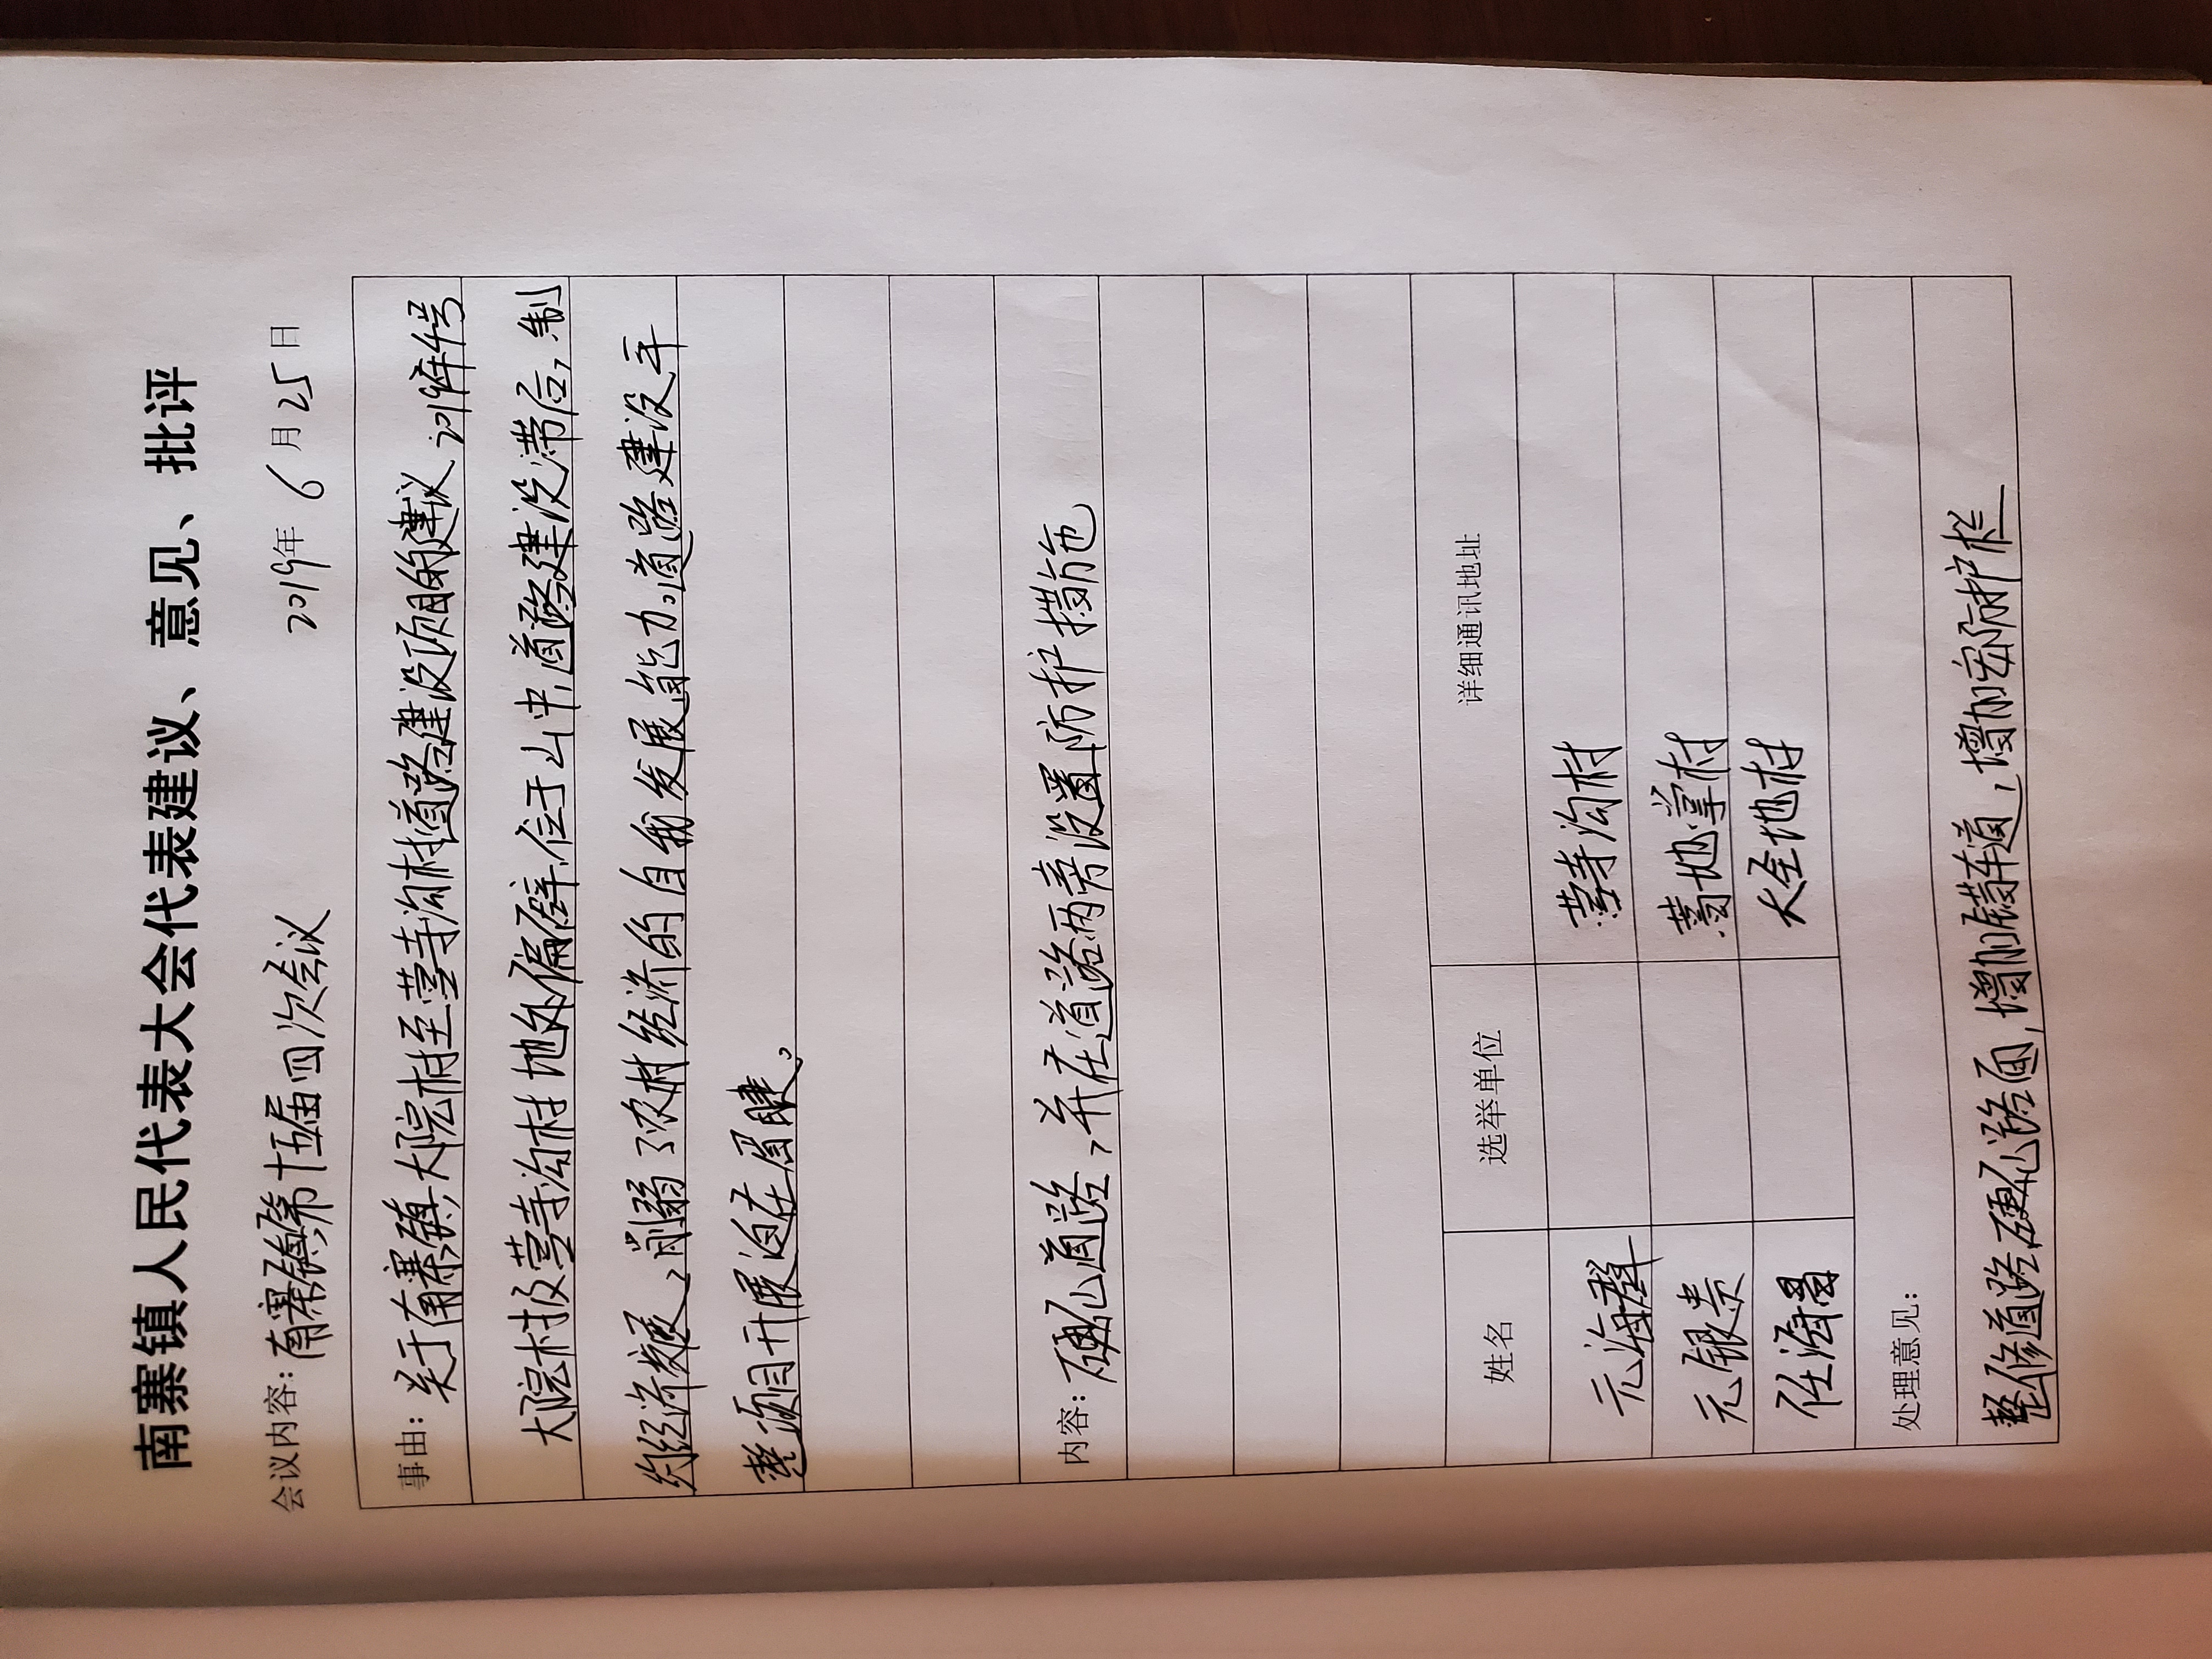 南寨镇人民代表大会代表建议、意见、批评
会议内容：南寨镇第十五届四次会议 2019年 6 月 25 日
事由：关于南寨镇大院村至营寺沟村道路建设项目的建议 2019年4号
大院村及营寺沟村地处偏僻，位于山中，道路建设滞后，制
约经济发展，削弱了农村经济的自我发展能力。道路建设平
整项目开展迫在眉睫。
内容：硬化道路，并在道路两旁设置防护措施
姓名 选举单位 详细通讯地址
元海群 营寺沟村
元银贵 地掌村
任海 大全地村
处理意见：
整修道路，硬化路面，增加错车道，增加安防护栏